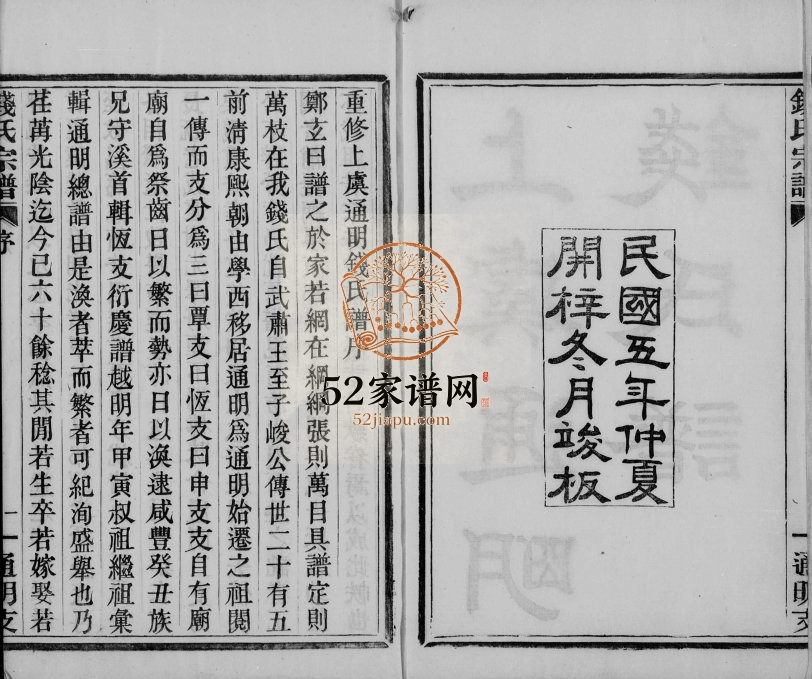 錢氏宗譜
一 通明支
民國五年仲夏
開梓冬月竣板
重修上虞通明錢氏譜序
鄭玄曰譜之於家若網在綱綱張則萬目具譜定則
萬枝在我錢氏自武肅王至子峻公傳世二十有五
前清康熙朝由學西移居通明為通明始遷之祖閱
一傳而支分為三曰覃支曰恆支曰申支支自有廟
廟自為祭齒日以繁而勢亦日以渙速咸豐癸丑族
兄守溪首輯恆支衍慶譜越明年甲寅叔祖繼祖彙
輯通明總譜由是渙者萃而繁者可紀洵盛舉也乃
荏苒光陰迄今已六十餘稔其閒若生卒若嫁娶若
錢氏宗譜
序
一 通明支
52家谱网
52jiapu.com